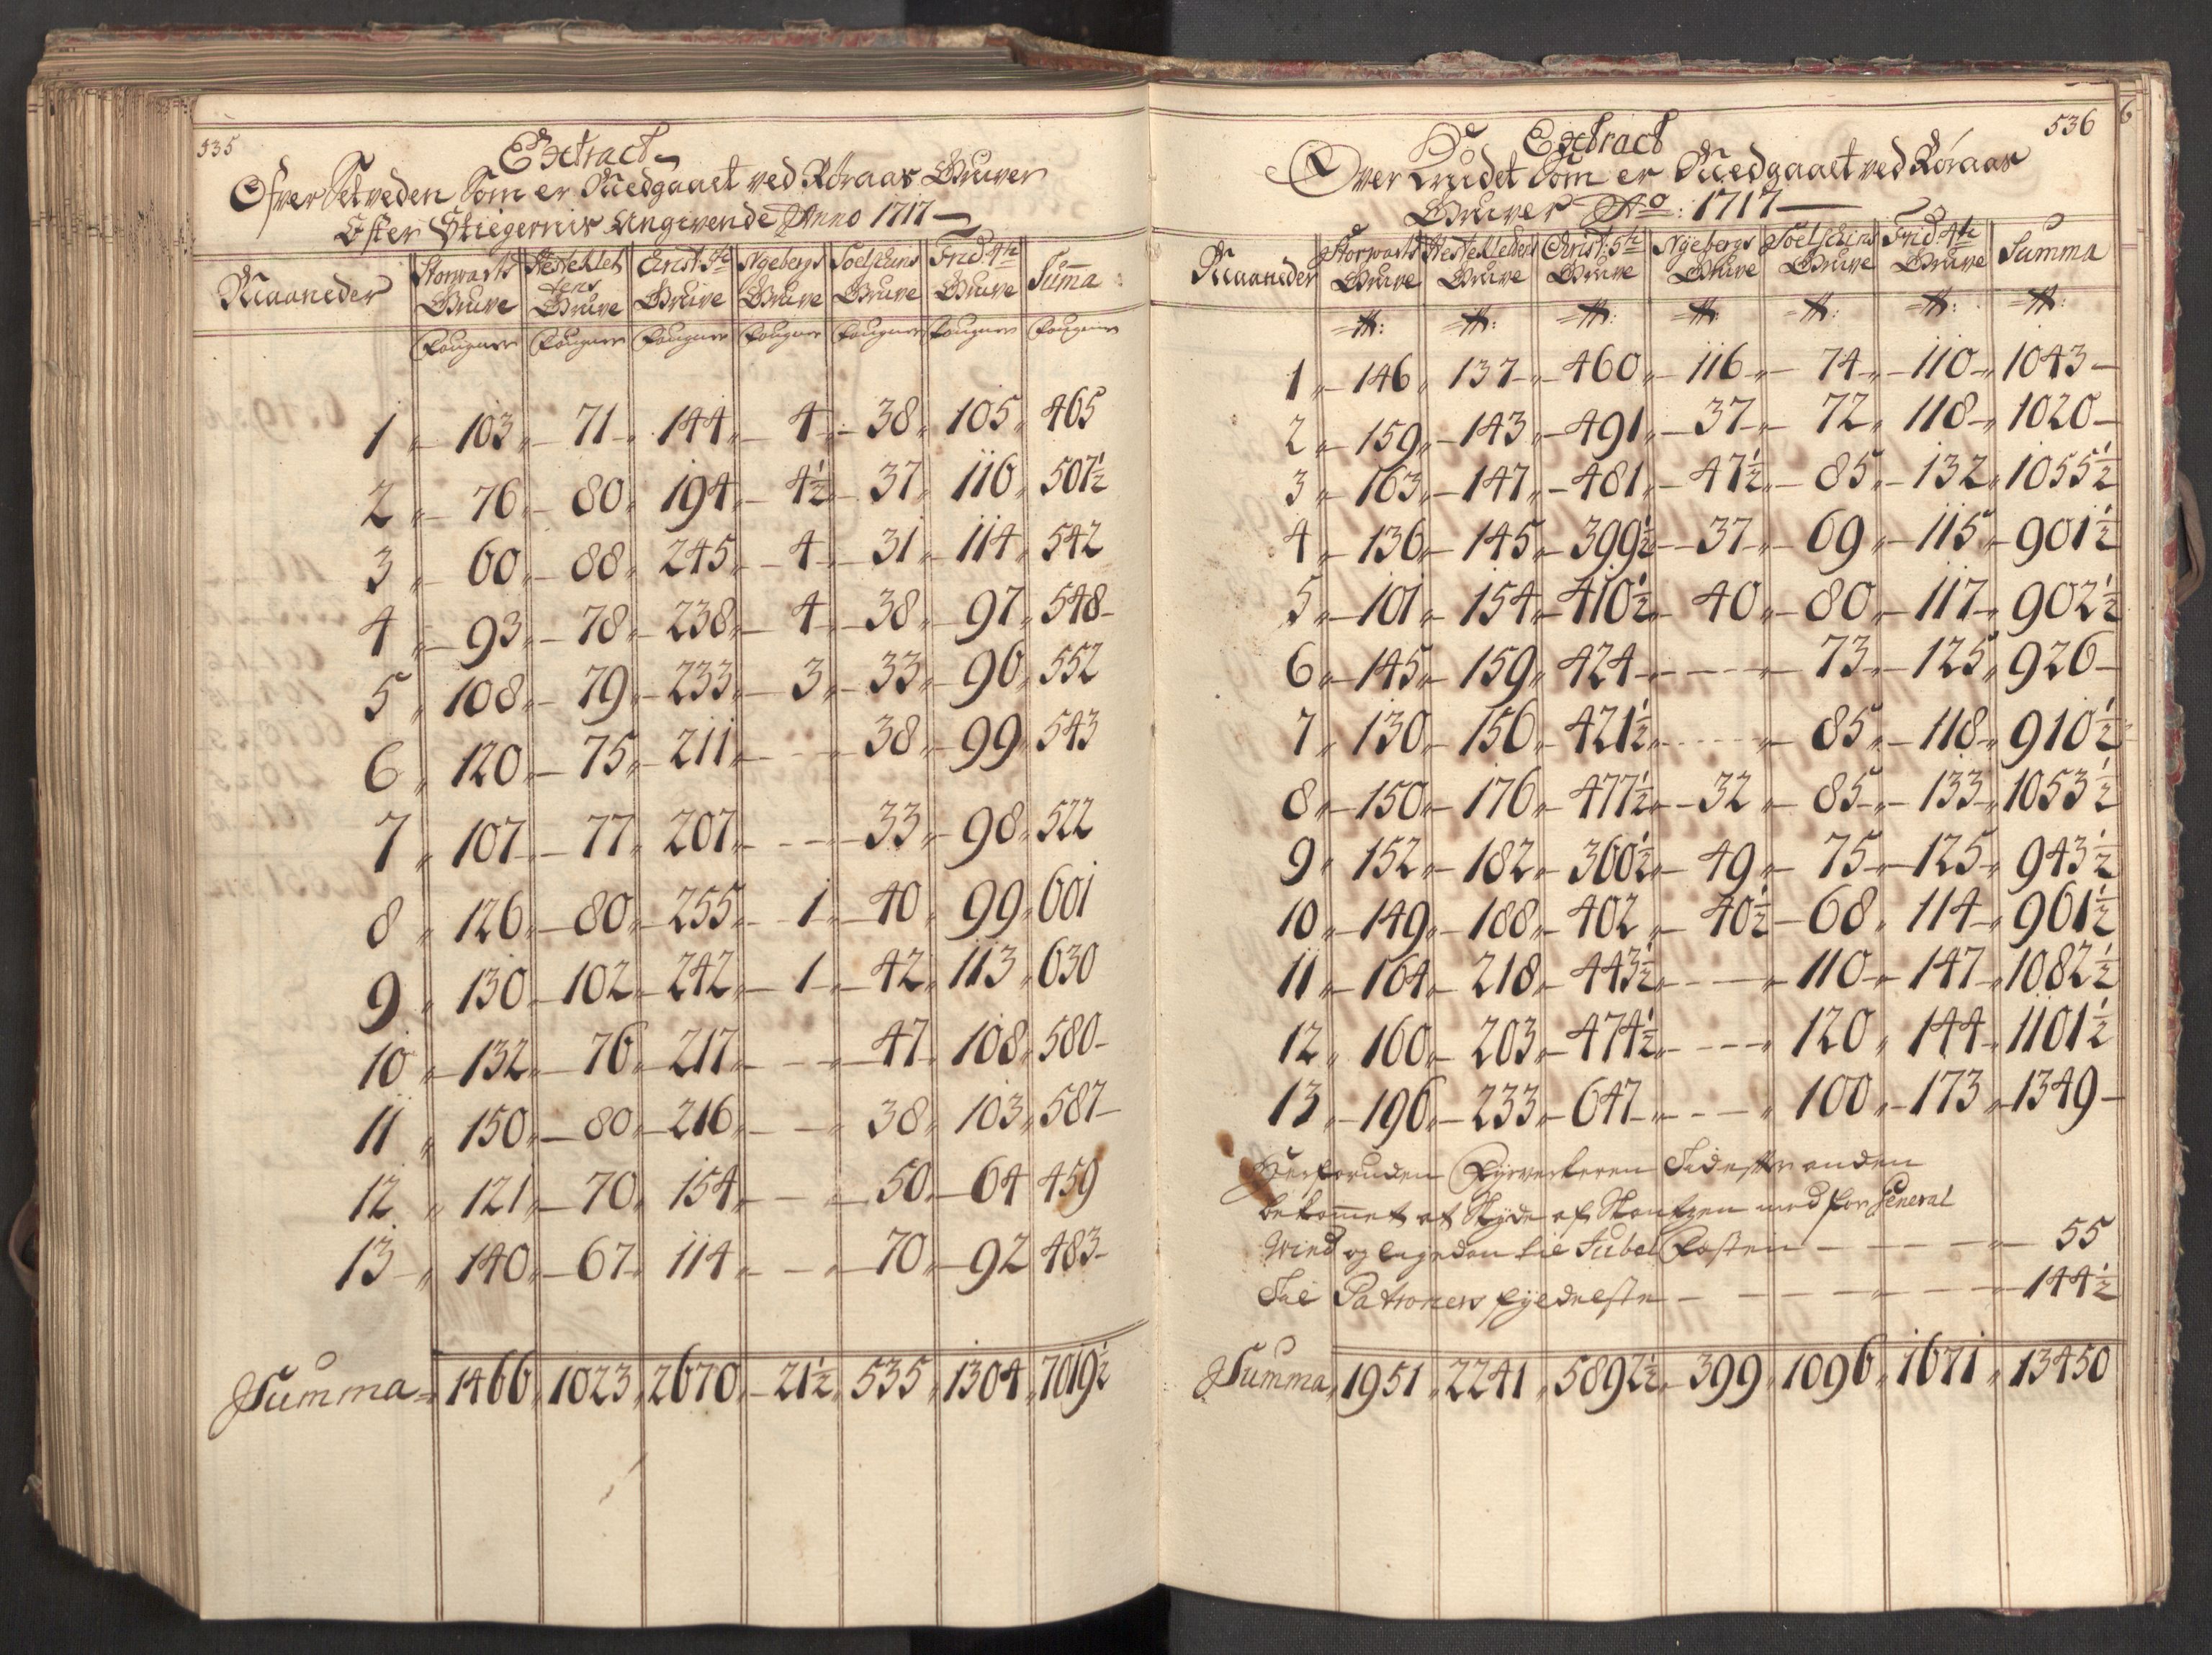 535
Extract
Ofver Setveden Som er Medgaaet ved Røraas Gruver
Efter Stiegernis Angivende Anno 1717
Maaneder Storwarts Gruve Hestehletens Gruve Christ: 5te Gruve Nyebergs Gruve Soelschins Gruve Frid: 4te Gruve Summa
Faugner Faugner Faugner Faugner Faugner Faugner Faugner
1 103 71 144 4 38 105 465
2 76 80 194 4½ 37 116 507½
3 60 88 245 4 31 114 542
4 93 78 238 4 38 97 548
5 108 79 233 3 33 96 552
6 120 75 211 38 99 543
7 107 77 207 33 98 522
8 126 80 255 1 40 99 601
9 130 102 242 1 42 113 630
10 132 76 217 47 108 580
11 150 80 216 38 103 587
12 121 70 154 50 64 459
13 140 67 114 70 92 483
Summa 1466 1023 2670 21½ 535 1304 7019½
536
Extract
Over Krudet Som er Medgaaet ved Røraas
Gruver Ao: 1717
Maaneder Storwarts Gruve Hestekletens Gruve Christ: 5te Gruve Nyebergs Gruve Soelschins Gruve Frid: 4te Gruve Summa
℔: ℔: ℔: ℔: ℔: ℔: ℔:
1 146 137 460 116 74 110 1043
2 159 143 491 37 72 118 1020
3 163 147 481 47½ 85 132 1055½
4 136 145 399½ 37 69 115 901½
5 101 154 410½ 40 80 117 902½
6 145 159 424 73 125 926
7 130 156 421½ 85 118 910½
8 150 176 477½ 32 85 133 1053½
9 152 182 360½ 49 75 125 943½
10 149 188 402 40½ 68 114 961½
11 164 218 443½ 110 147 1082½
12 160 203 474½ 120 144 1101½
13 196 233 647 100 173 1349
Herforuden Fyrverkeren
bekommet at Skyde af Skantzen med for General
Wind og ligedan til Jubel Festen 55
Til Patroners 144½
Summa 1951 2241 5892½ 399 1096 1671 13450